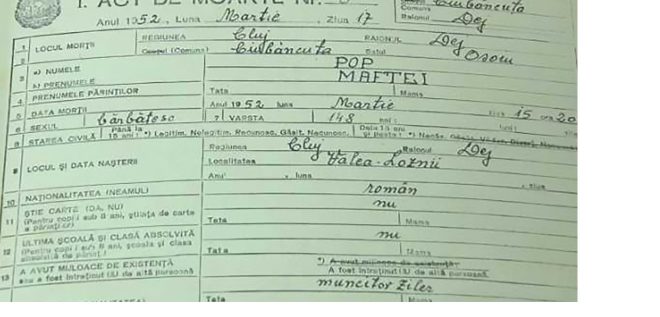 I. ACT DE MOARTE NR.
Comuna Ciubăncuța
Anul 1952, Luna Martie, Ziua 17 Raionul Dej
1 LOCUL MORȚII REGIUNEA Cluj RAIONUL Dej
2 Orașul (Comuna) Ciubăncuța Satul Osoiu
3 a) NUMELE POP
b) PRENUMELE MAFTEI
4 PRENUMELE PĂRINȚILOR Tata Mama
5 DATA MORȚII Anul 1952 luna Martie ziua 15 ora 20
6 SEXUL bărbătesc 7 VARSTA 148 ani
8 STAREA CIVILĂ Până la 15 ani: *) Legitim, Nelegitim, Recunosc, Găsit, Necunosc.
9 LOCUL ȘI DATA NAȘTERII Regiunea Cluj Raionul Dej
Localitatea Valea-Loznii
Anul , luna , ziua
10 NAȚIONALITATEA (NEAMUL) român
11 ȘTIE CARTE (DA, NU) nu
(Pentru copii sub 8 ani, știința de carte a părinților) Tata Mama
12 ULTIMA ȘCOALĂ ȘI CLASĂ ABSOLVITĂ nu
(Pentru copii sub 8 ani, școala și clasa absolvită de părinți) Tata Mama
13 A AVUT MIJLOACE DE EXISTENȚĂ *) A avut mijloace de existență
sau a fost întreținut (ă) de altă persoană A fost întreținut (ă) de altă persoană
muncitor ziler
Tata Mama